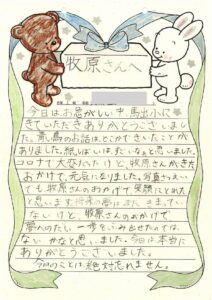 牧原さんへ
今日はお忙しい中、馬出小に
きていただきありがとうございまし
た。牧原さんのお話は、とてもできたことが
ありました。紙しばいは、だいなと思いました。
コロナで大変だったけど、牧原さんがきた
おかげで、元気になりました。写真さつえい
でも牧原さんのおかげで笑顔にとれた
と思います。将来の夢はまだ、きまってい
ないけど、牧原さんのおかげで
夢へのだい一歩をふみ出せたのでは
ないかなと思いました。今日は本当に
ありがとうございました。
今日のことは絶対忘れません。